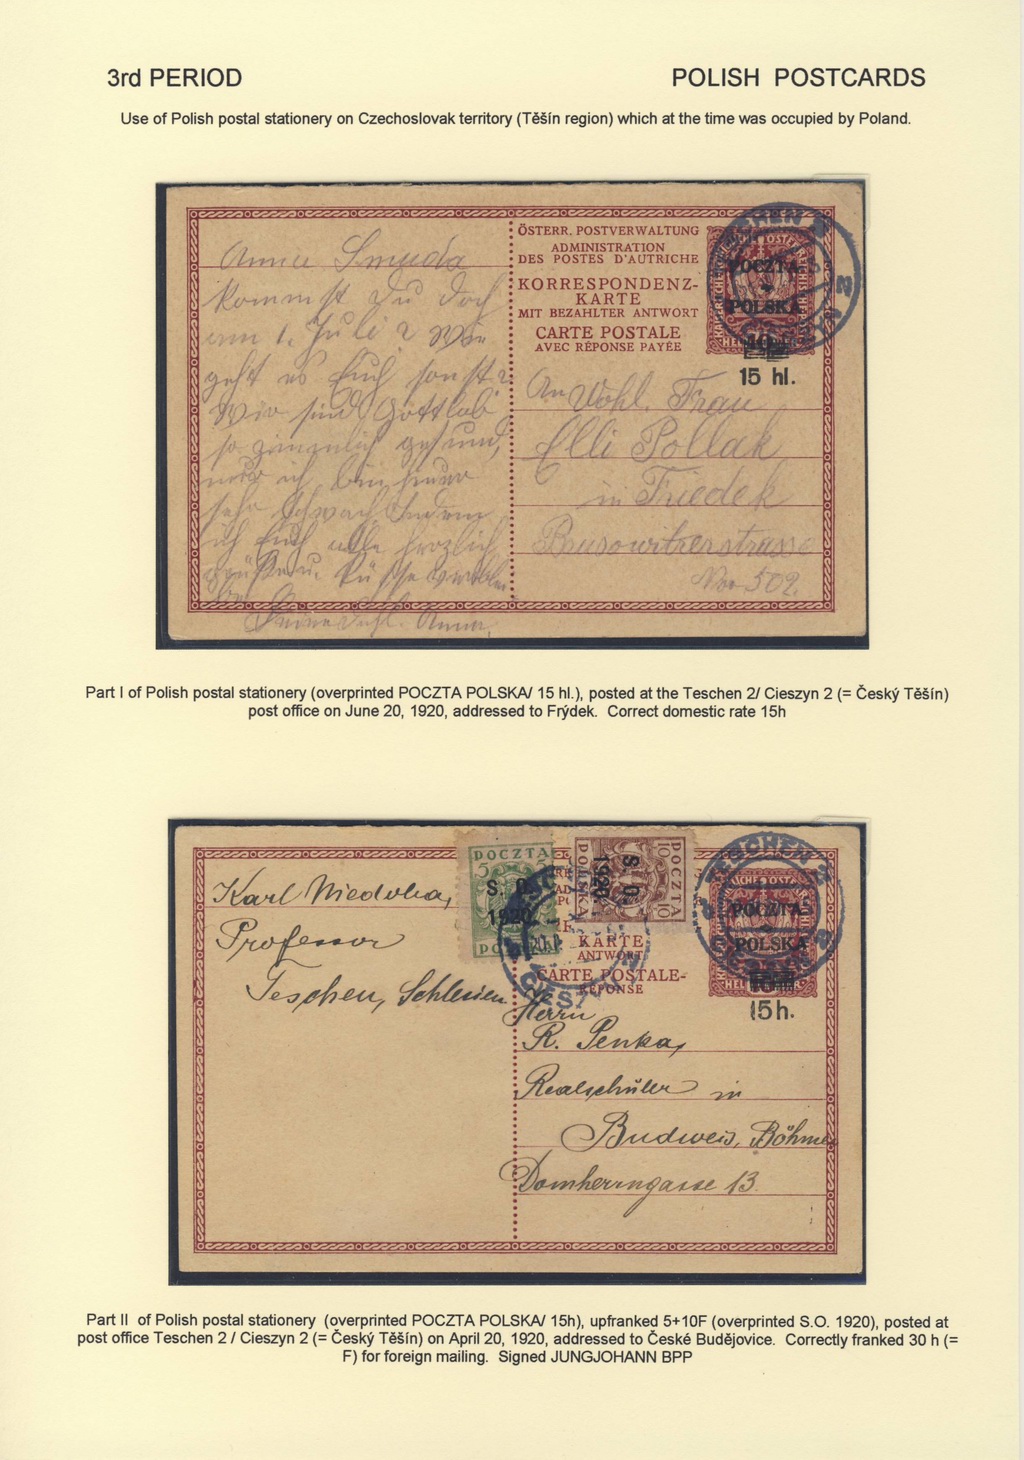 3rd PERIOD
POLISH POSTCARDS
Use of Polish postal stationery on Czechoslovak territory (Těšín region) which at the time was occupied by Poland.
ÖSTERR. POSTVERWALTUNG
ADMINISTRATION
DES POSTES D'AUTRICHE
KORRESPONDENZ-
KARTE
MIT BEZAHLTER ANTWORT
CARTE POSTALE
AVEC RÉPONSE PAYÉE
POCZTA
POLSKA
15 hl.
Anna Smuda
Kommst Du doch
am 1. Juli? Wie
geht es Euch sonst?
Wir sind Gottlob
so ziemlich gesund,
nur ich bin immer
sehr schwach. Indem
ich Euch alle herzlich
An Wohl. Frau
Elli Pollak
in Friedek
Brusowitzerstrasse
Nro 502.
Part I of Polish postal stationery (overprinted POCZTA POLSKA/ 15 hl.), posted at the Teschen 2/ Cieszyn 2 (= Český Těšín)
post office on June 20, 1920, addressed to Frýdek. Correct domestic rate 15h
POCZTA
5 5
S. O.
1920.
POCZTA
POLSKA
10 10
S. O.
1920.
KARTE
ANTWORT
CARTE POSTALE-
RÉPONSE
TESCHEN 2
CIESZYN 2
POCZTA
POLSKA
15h.
Karl
Professor
Teschen, Schlesien
Herrn
R. Penka,
Realschüler in
Budweis, Böhmen
Domherrngasse 13.
Part II of Polish postal stationery (overprinted POCZTA POLSKA/ 15h), upfranked 5+10F (overprinted S.O. 1920), posted at
post office Teschen 2 / Cieszyn 2 (= Český Těšín) on April 20, 1920, addressed to České Budějovice. Correctly franked 30 h (=
F) for foreign mailing. Signed JUNGJOHANN BPP